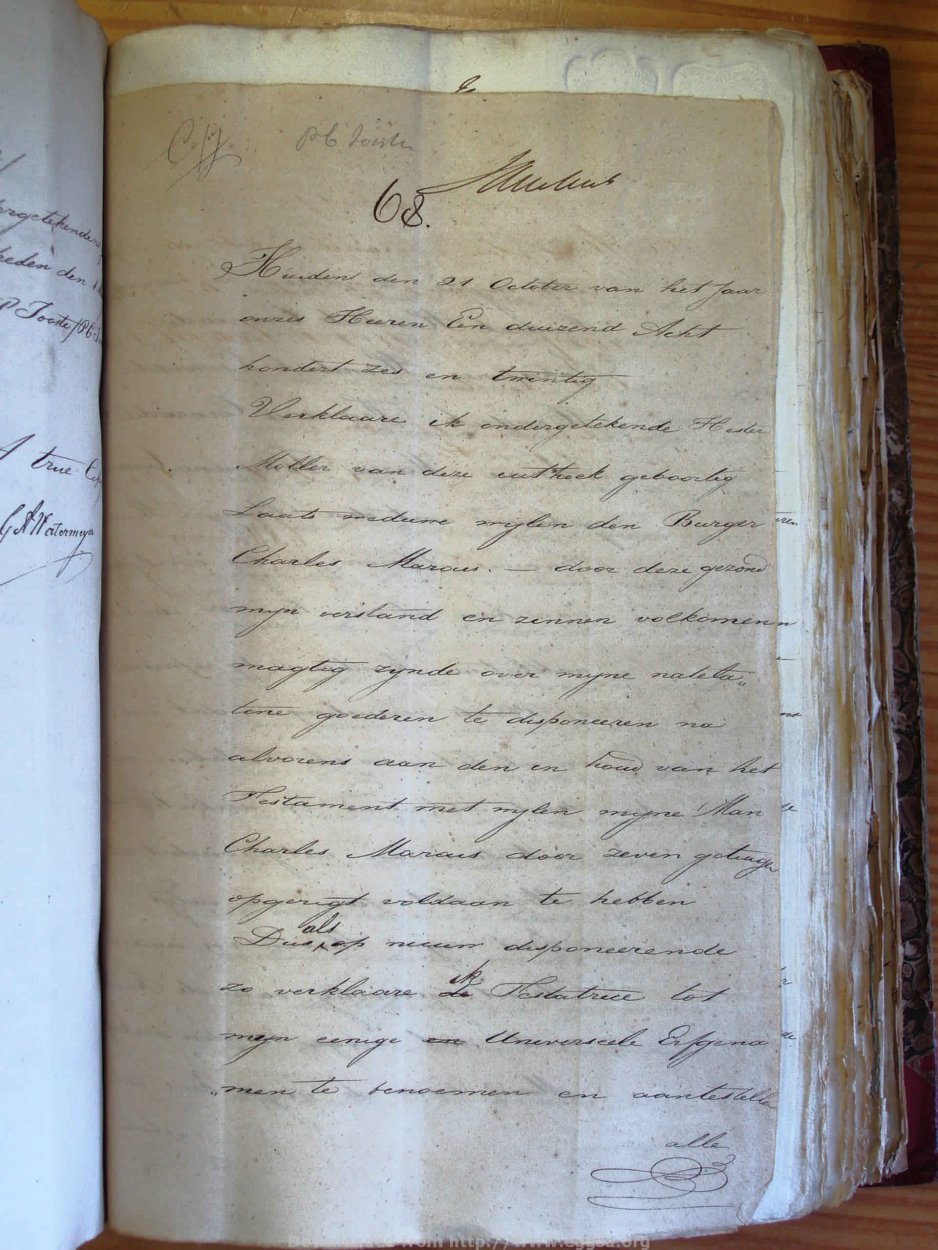 ergetekende
heden den
P Jooste
A true Cop
G A Watermeyer
Copy
P C Jooste
68.
Huiden den 21 October van het Jaar
onzes Heeren Een duizend Acht
hondert zes en twintig
Verklaare ik ondergetekende Hester
Moller van deze uithoek geboortig
Laats weduwe wylen den Burger
Charles Marais. — door deze gezond
myn verstand en zinnen volkomen
magtig zynde over myne natela„
tene goederen te disponeeren na
alvorens aan den in houd van het
Testament met wylen myne Man
Charles Marais door zeven getuigen
opgerigt voldaan te hebben
Dus als op nieuw disponeerende
zo verklaare ik Testatrice tot
myn eenige en Universeele Erfgena
„men te benoemen en aantestellen
alle
Downloaded from http://www.eggsa.org